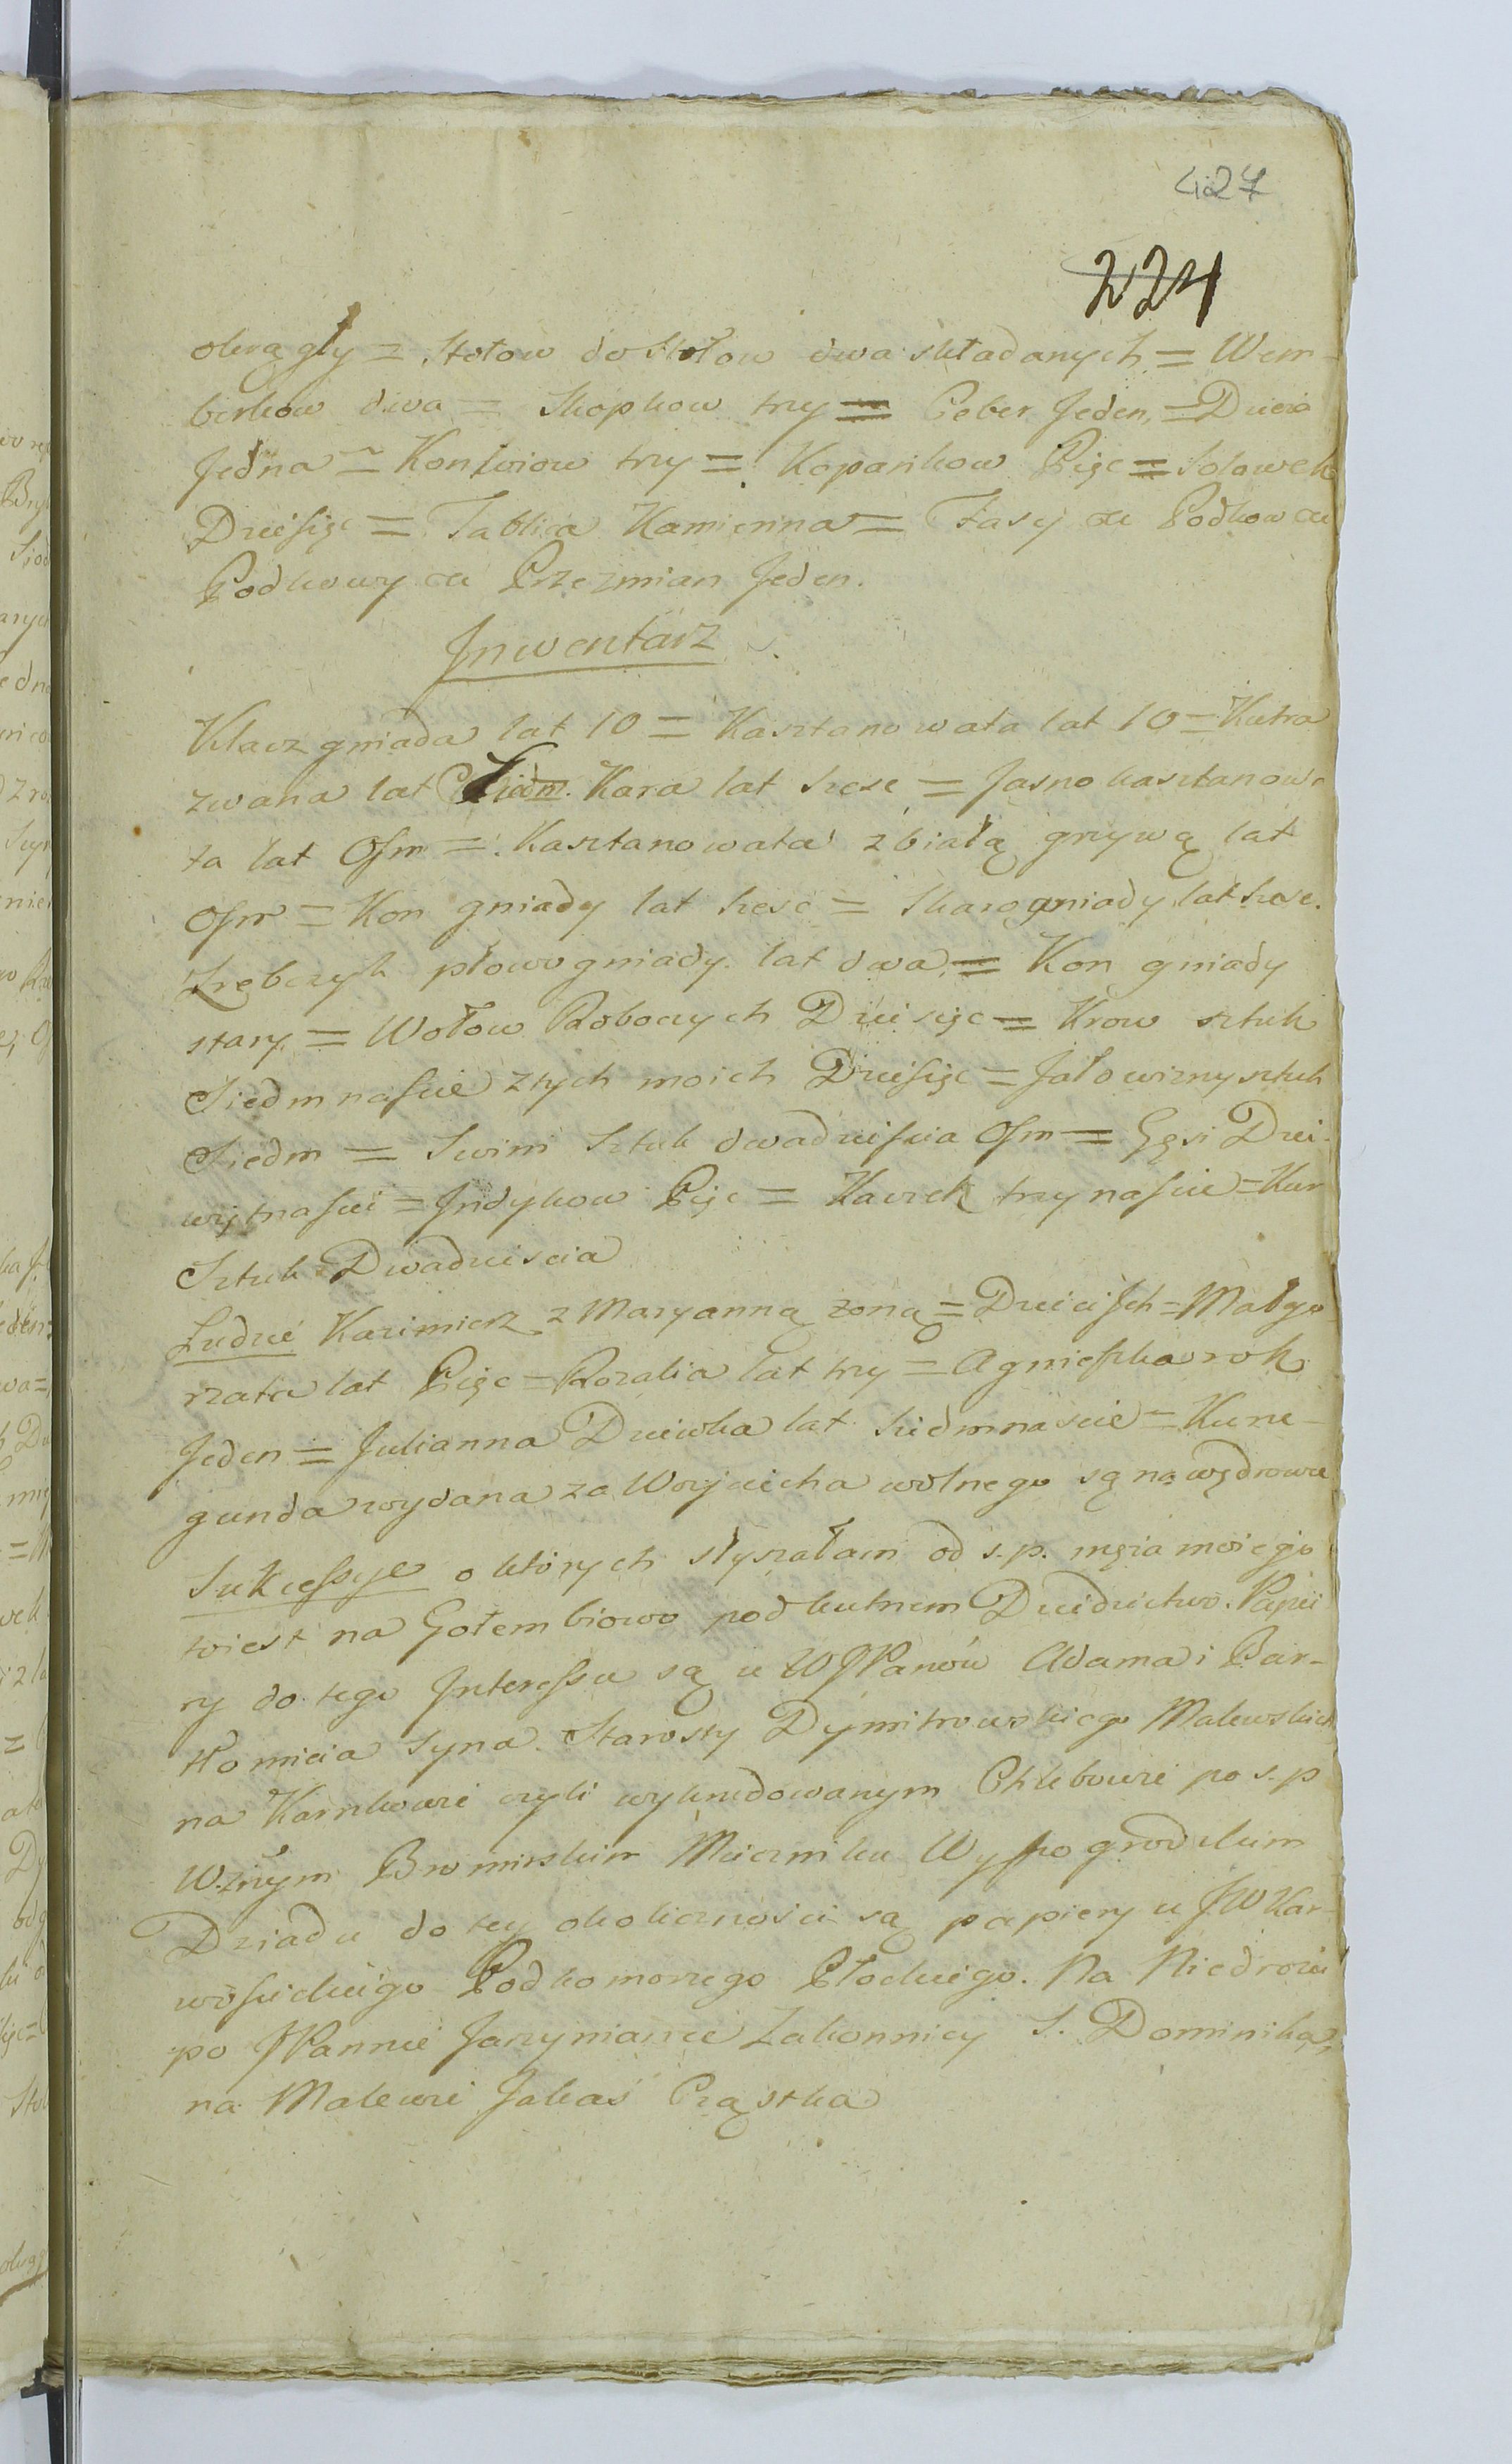 427
224
okrągły = Stołow do Stołow dwa składanych = Wem-
borkow dwa = Skopkow trzy = Ceber Jeden, = Dzieża
Jedna = Konwiow trzy = Kopankow Pięc = Solowek
Dziesięc = Tablica Kamienna = Fasy Podkow
Podkowy Przezmian Jeden.
Jnwentarz
Klacz gniada lat 10 = Kasztanowata lat 10 = Kutra
zwana lat Siedm. Kara lat szesc = Jasno kasztanowa
ta lat Osm = Kasztanowata z białą grzywą lat
Osm = Kon gniady lat szesc = Skarogniady lat szesc.
Zrebczyk płowogniady lat dwa = Kon gniady
stary = Wołow Roboczych Dziesięc = Krow sztuk
Siedmnascie z tych moich Dziesięc = Jałowizny sztuk
Siedm = Swini Sztuk dwadziescia Osm = Gęsi Dzie-
więtnascie = Jndykow Pięc = Kaczek trzynascie = Kur
Sztuk Dwadziescia
Ludzie Kazimierz z Maryanną zoną = Dzieci Jch = Małgo
rzata lat Pięc = Rozalia lat trzy = Agnieszka rok
Jeden = Julianna Dziewka lat siedmnascie = Kune-
gunda wydana za Woyciecha wolnego są na wędrowce
Sukcessye o ktorych słyszałam od s.p. męża moiego
toiest na Gołembiowo pod kutnem Dziedzictwo. Papie
ry do tego Jnteressu są u WJPanów Adama i Bar-
tłomieia Syna Starosty Dymitrowskiego Malewskich
na Karnkowie czyli wykredowanym Chlebowie po s.p
Wznym Bromirskim Mieczniku Wyszogrodzkim
Dziadu do tey okoliczności są papiery u JW Kar-
wosieckiego Podkomorzego Płockiego. Na Niedrożu
po JPannie Jarzyniance Zakonnicy S. Dominika,
na Malewie Jakaś Cząstka